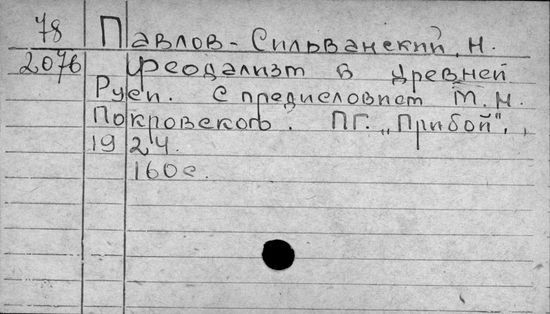 78 Павлов-Сильванский, Н.
2076 Феодализм в древней
Руси. С предисловием М.Н.
Покровского. ПГ. „Прибой",
1924.
160с.